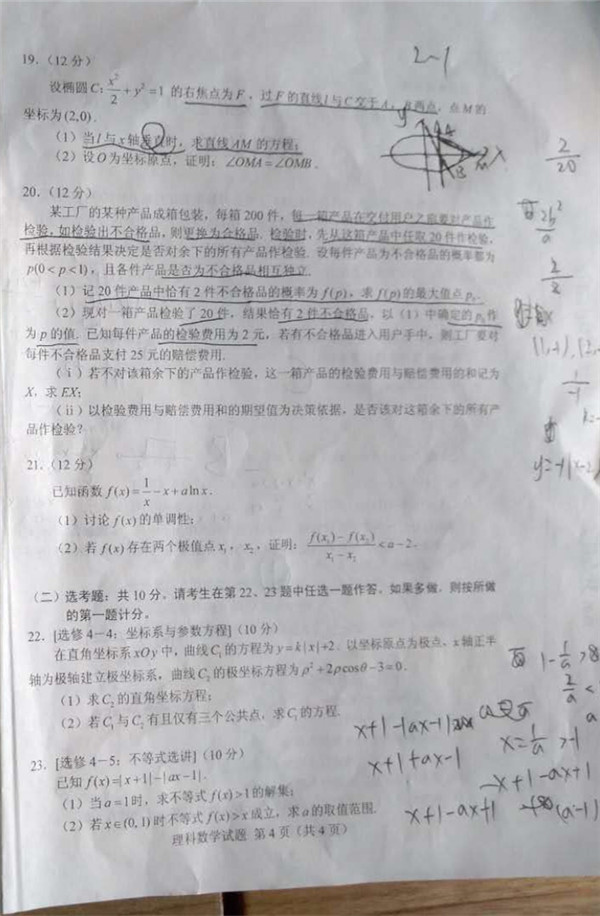 19.（12 分）
2-1
设椭圆 C: x²/2 + y² = 1 的右焦点为 F，过 F 的直线 l 与 C 交于 A，B 两点，点 M 的
坐标为 (2,0).
（1）当 l 与 x 轴垂直时，求直线 AM 的方程；
（2）设 O 为坐标原点，证明：∠OMA = ∠OMB.
2/20
20.（12 分）
某工厂的某种产品成箱包装，每箱 200 件，每一箱产品在交付用户之前要对产品作
检验，如检验出不合格品，则更换为合格品. 检验时，先从这箱产品中任取 20 件作检验，
再根据检验结果决定是否对余下的所有产品作检验. 设每件产品为不合格品的概率都为
p(0<p<1)，且各件产品是否为不合格品相互独立.
（1）记 20 件产品中恰有 2 件不合格品的概率为 f(p)，求 f(p) 的最大值点 p₀.
（2）现对一箱产品检验了 20 件，结果恰有 2 件不合格品，以（1）中确定的 p₀ 作
为 p 的值. 已知每件产品的检验费用为 2 元，若有不合格品进入用户手中，则工厂要对
每件不合格品支付 25 元的赔偿费用.
（i）若不对该箱余下的产品作检验，这一箱产品的检验费用与赔偿费用的和记为
X，求 EX；
（ii）以检验费用与赔偿费用和的期望值为决策依据，是否该对这箱余下的所有产
品作检验？
2b²/a
2/2
21.（12 分）
已知函数 f(x) = 1/x - x + a ln x.
（1）讨论 f(x) 的单调性；
（2）若 f(x) 存在两个极值点 x₁，x₂，证明：(f(x₁)-f(x₂))/(x₁-x₂) < a-2.
（二）选考题：共 10 分。请考生在第 22、23 题中任选一题作答。如果多做，则按所做
的第一题计分。
22. [选修 4-4：坐标系与参数方程]（10 分）
在直角坐标系 xOy 中，曲线 C₁ 的方程为 y=k|x|+2. 以坐标原点为极点，x 轴正半
轴为极轴建立极坐标系，曲线 C₂ 的极坐标方程为 ρ²+2ρcosθ-3=0.
（1）求 C₂ 的直角坐标方程；
（2）若 C₁ 与 C₂ 有且仅有三个公共点，求 C₁ 的方程.
23. [选修 4-5：不等式选讲]（10 分）
已知 f(x)=|x+1|-|ax-1|.
（1）当 a=1 时，求不等式 f(x)>1 的解集；
（2）若 x∈(0,1) 时不等式 f(x)>x 成立，求 a 的取值范围.
x+1-|ax-1|
x+1+ax-1
x=1/a>1
-x+1-ax+1
x+1-ax+1
理科数学试题 第 4 页（共 4 页）